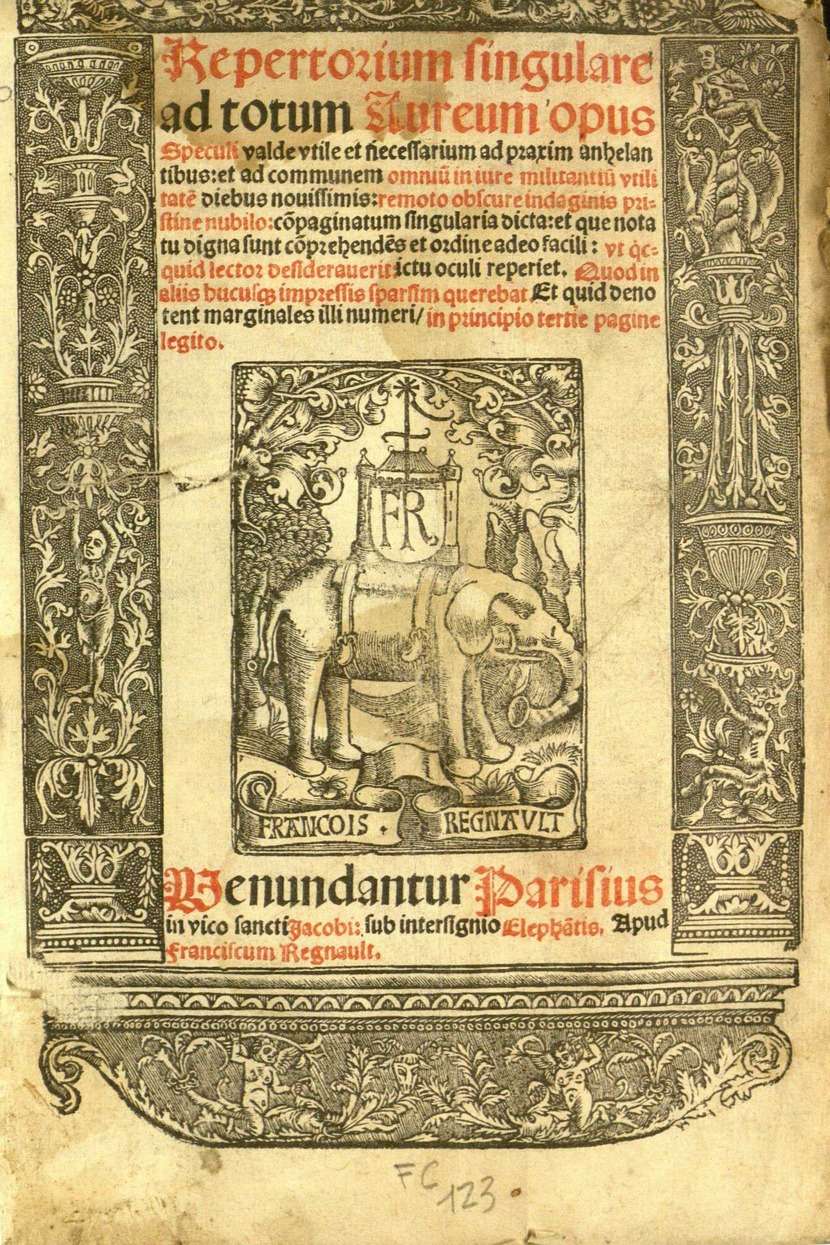 Repertorium singulare
ad totum Aureum opus
Speculi valde vtile et necessarium ad praxim anhelan
tibus: et ad communem omniũ in iure militantiũ vtili
tatẽ diebus nouissimis: remoto obscure indaginis pri-
stine nubilo: cõpaginatum singularia dicta: et que nota
tu digna sunt cõprehendẽs et ordine adeo facili: vt
quid lector desiderauerit ictu oculi reperiet. Quod in
aliis hucusqꝫ impressis sparsim querebat Et quid deno
tent marginales illi numeri/ in principio tertie pagine
legito.
FR
FRANCOIS . REGNAVLT
Venundantur Parisius
in vico sancti Jacobi: sub intersignio Elephãtis. Apud
Franciscum Regnault.
FC
123